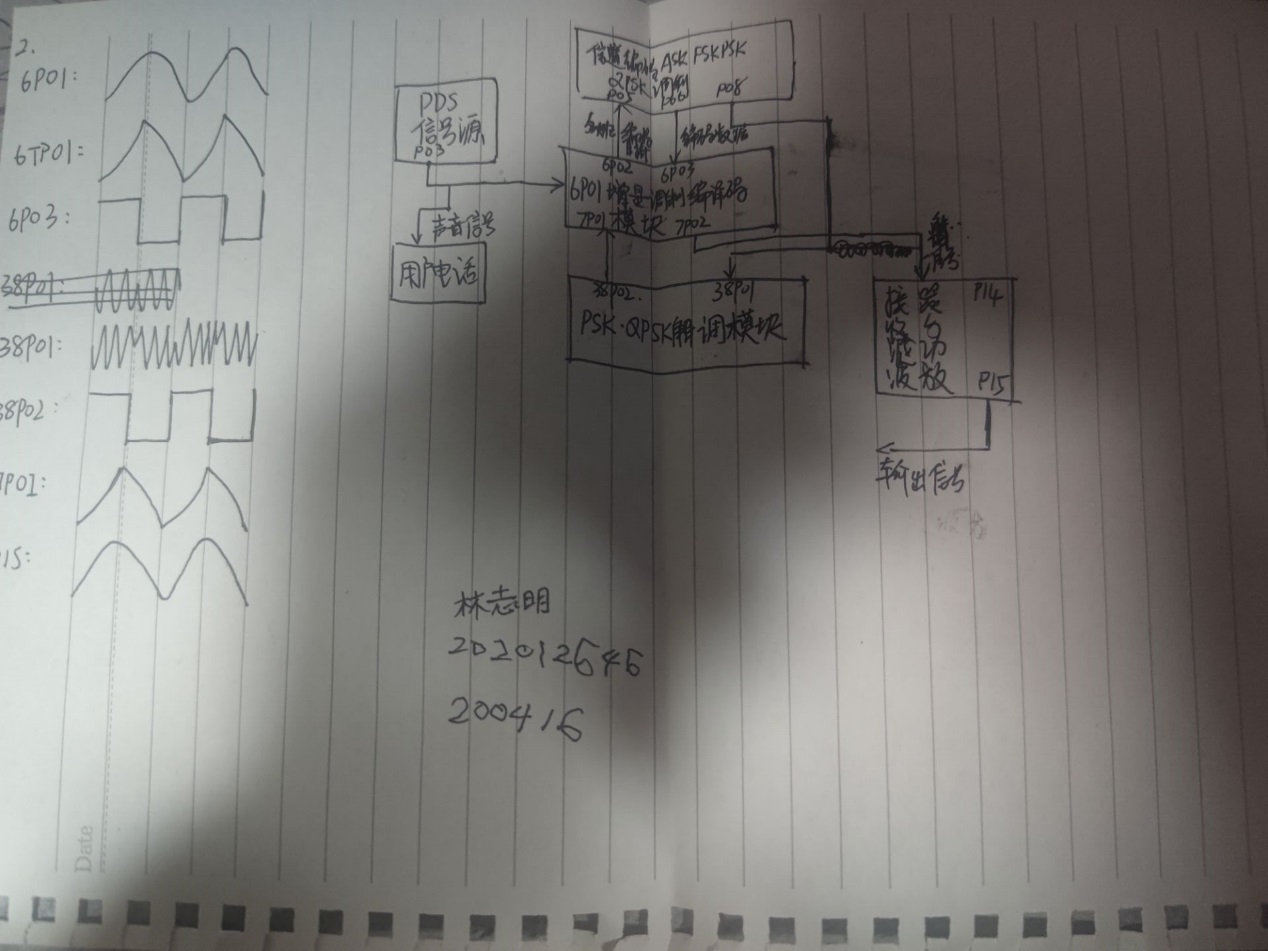 2.
6P01:
6TP01:
6P03:
38P01:
38P01:
38P02:
7P01:
P15:
DDS
信号源
P03
声音信号
用户电话
信道编码 ASK FSK PSK
QPSK 调制
P05 P06 P08
编码数据
6P02 6P03
6P01 增量调制编译码
7P01 模块 7P02
38P02. 38P01
PSK·QPSK解调模块
接收滤波 P14
P15
输出信号
林志明
202012545
200416
Date